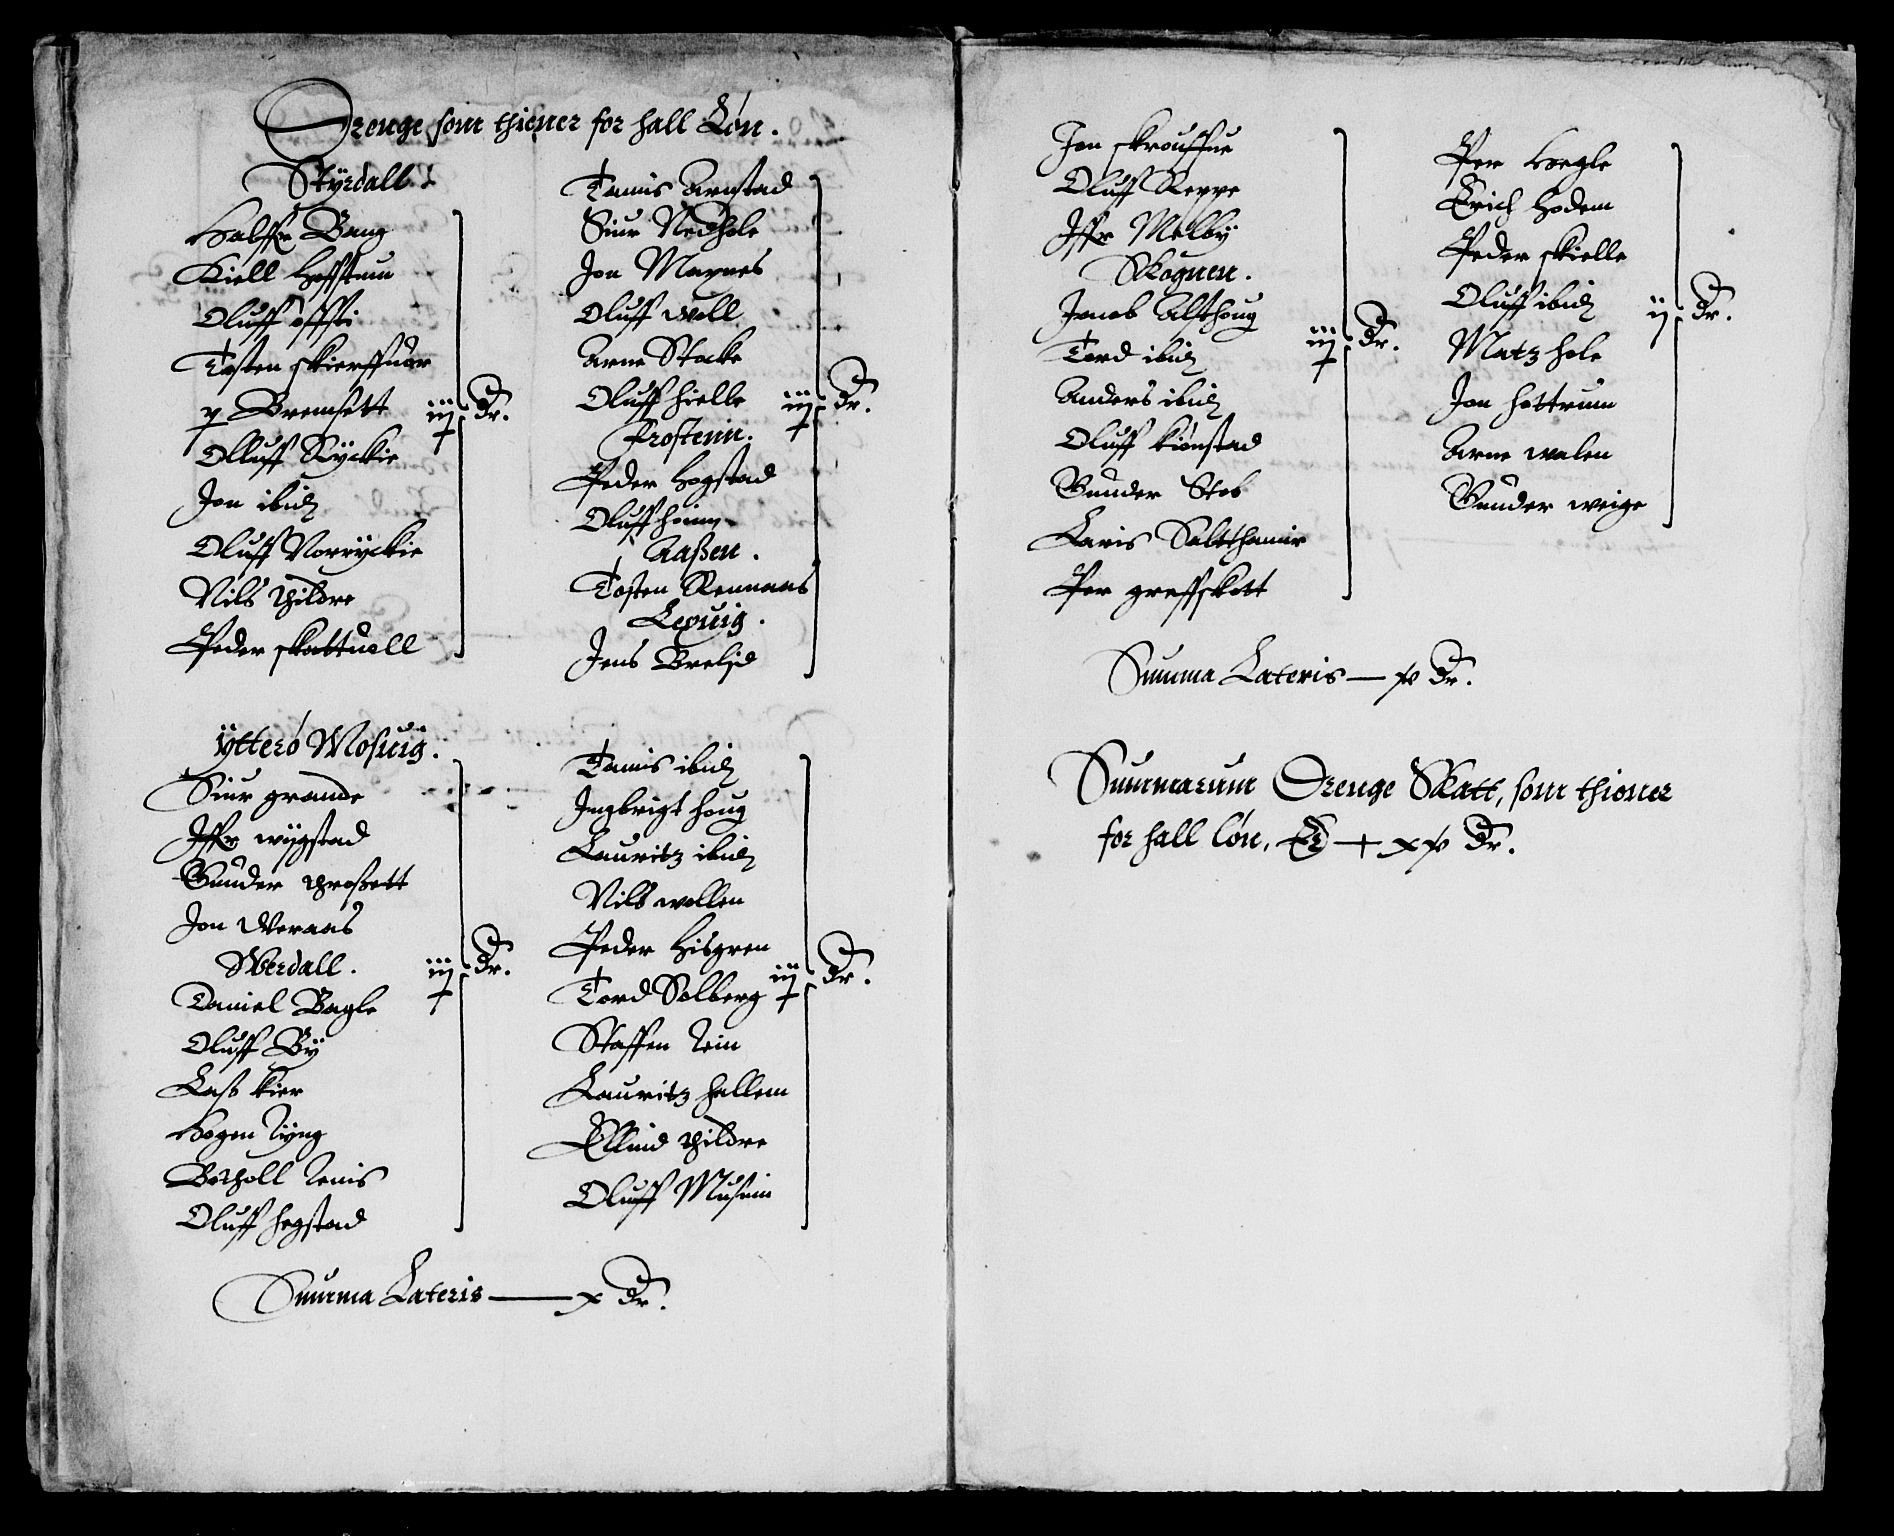 Drenge som thiener for hall Løn.
Styrdall
Halffr Bang
Kiell Hoffstum
Oluff offsti
Tosten skierffuor
p Bremsett
Olluff Ryckie
Jon ibid
Oluff Norryckie
Nils Hildre
Peder skattuoll
iij Dr.
Tamis Arnstad
Siur Nedhole
Jon Maynes
Oluff Woll
Arne Stocke
Oluff hielle
Frostenn.
Peder Hogstad
Oluff hoiny
Aaßen.
Tosten Rennaas
Lexuig.
Jens Brelid
iij Dr.
ytterø Mosuig.
Siur grande
Iffr wygstad
Gunder Hroßett
Jon Weraas
Werdall.
Daniel Bagle
Oluff By
Laß kier
Hogen Ryng
Berholl Renis
Oluff hegstad
iij Dr.
Tamis ibid
Ingbrigt houg
Lauritz ibid
Nils wollen
Peder Hisgren
Tord Solberg
Staffen Rein
Lauritz hallem
Ellind Hildre
Oluff Musum
iij Dr.
Summa Lateris — x Dr.
Jon skrouffue
Oluff Reppe
Iffr Melby
Skognen.
Jacob Alsthoug
Tord ibid
Anders ibid
Oluff kionstad
Gunder Stob
Laris Saltthamir
Per greffskott
iij Dr.
Per Hegle
Erich Hodem
Peder skielle
Oluff ibid
Matz hole
Jon hottrum
Arne walen
Gunder weige
ij Dr.
Summa Lateris — v Dr.
Summarum Drenge Skatt, som thiener
for hall løn, Er — xv Dr.